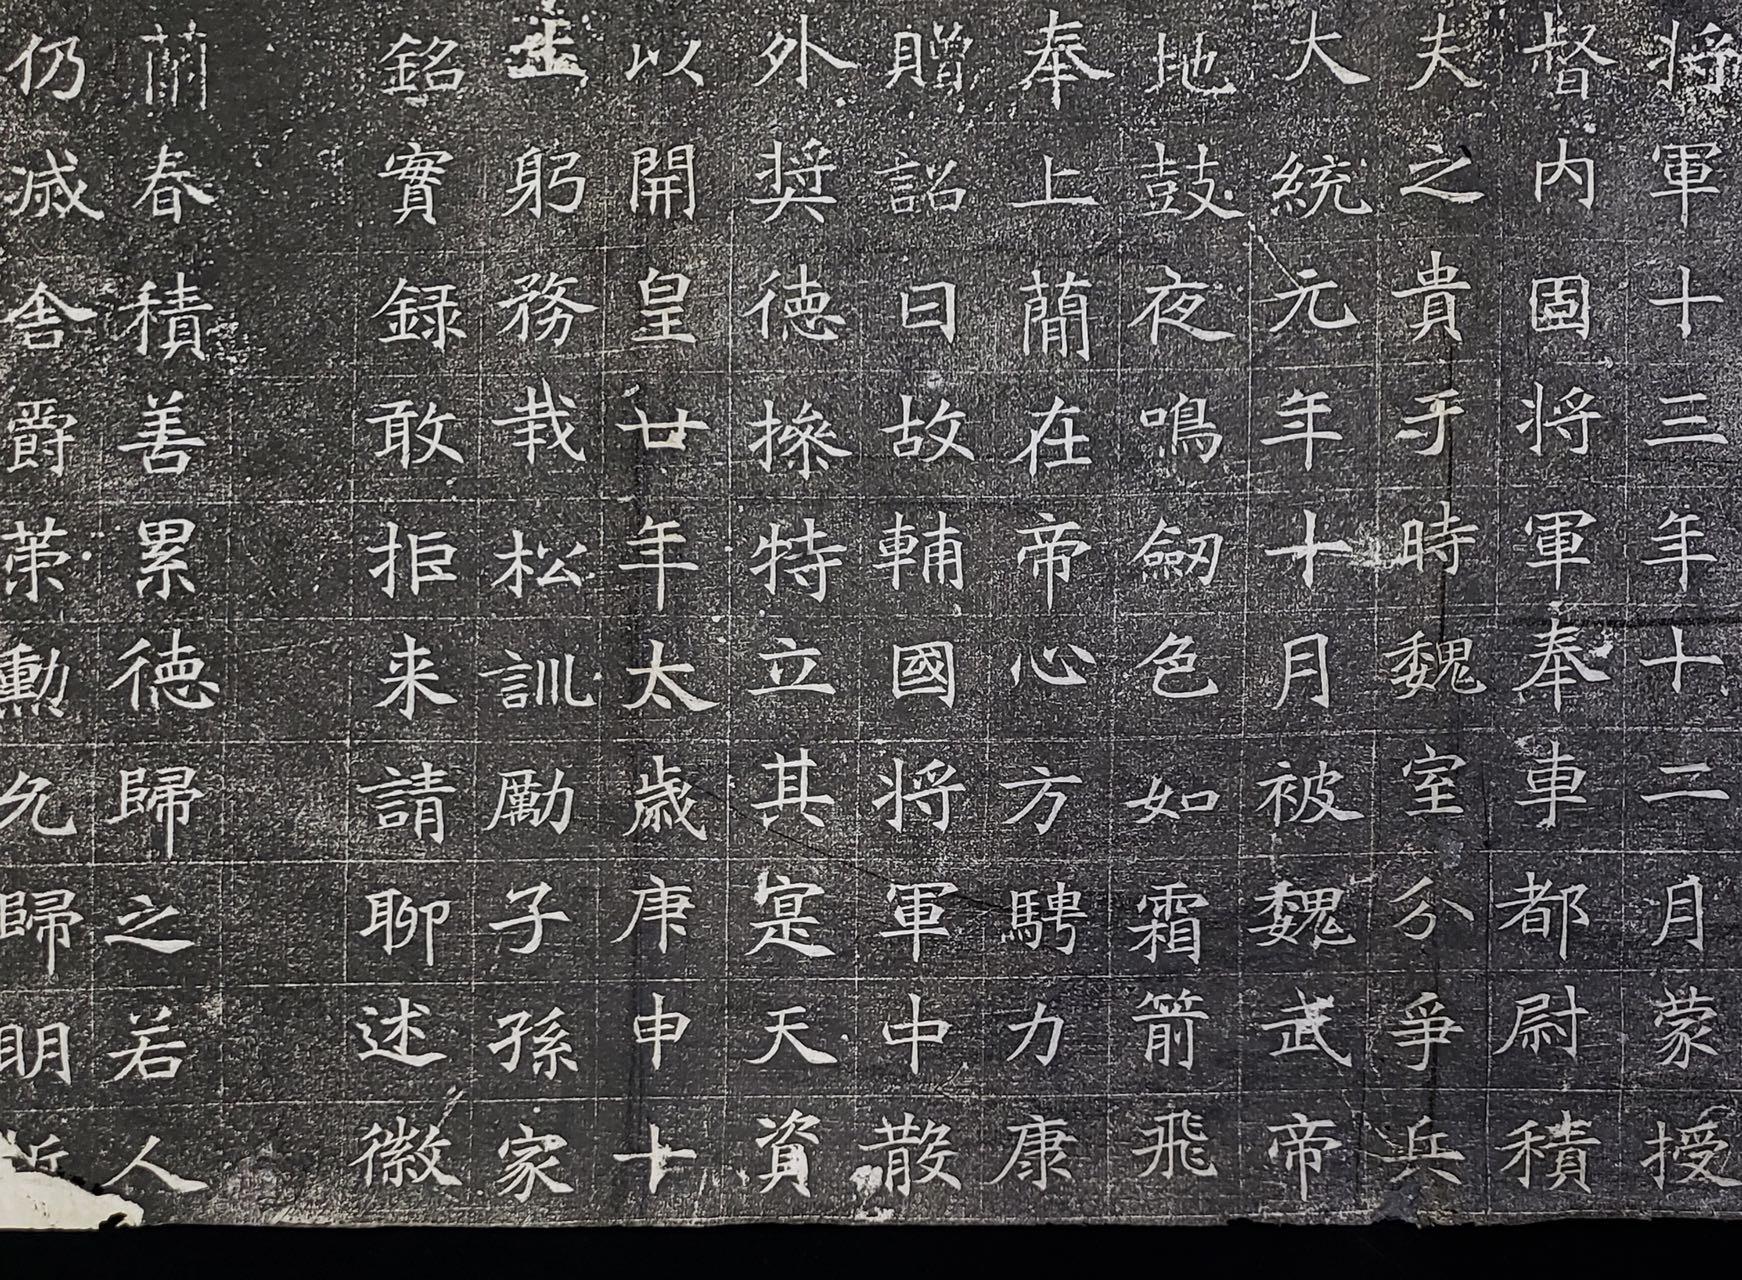 将軍十三年十二月蒙授
督内固将軍奉車都尉積
夫之貴于時魏室分爭兵
大統元年十月被魏武帝
地鼓夜鳴劒色如霜箭飛
奉上蕳在帝心方騁力康
贈詔曰故輔國将軍中散
外奨德操特立其寔天資
以開皇廿年太歳庚申十
躬務哉松訓勵子孫家
銘實録敢拒来請聊述徽
蘭春積善累德歸之若人
仍减舎爵荣勳允歸明